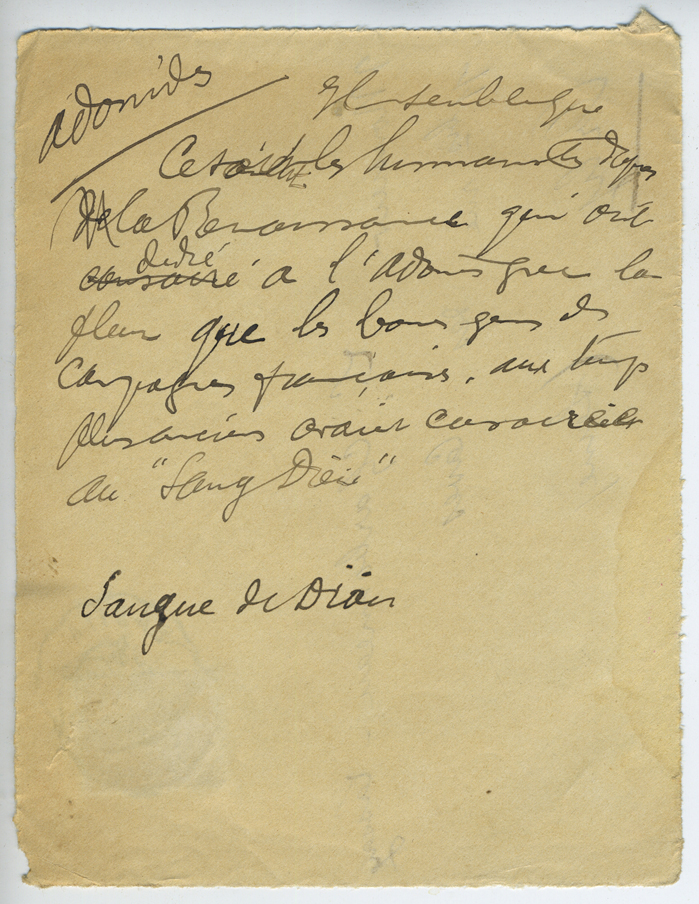 adonides
Il semble que
Ce sont les humanistes
de la Renaissance qui ont
consacré dédié à l'Adonis grec la
fleur que les bonnes gens des
campagnes françaises, aux temps
plus anciens avaient consacrée
au "Sang Dieu"
Sangue de Dious